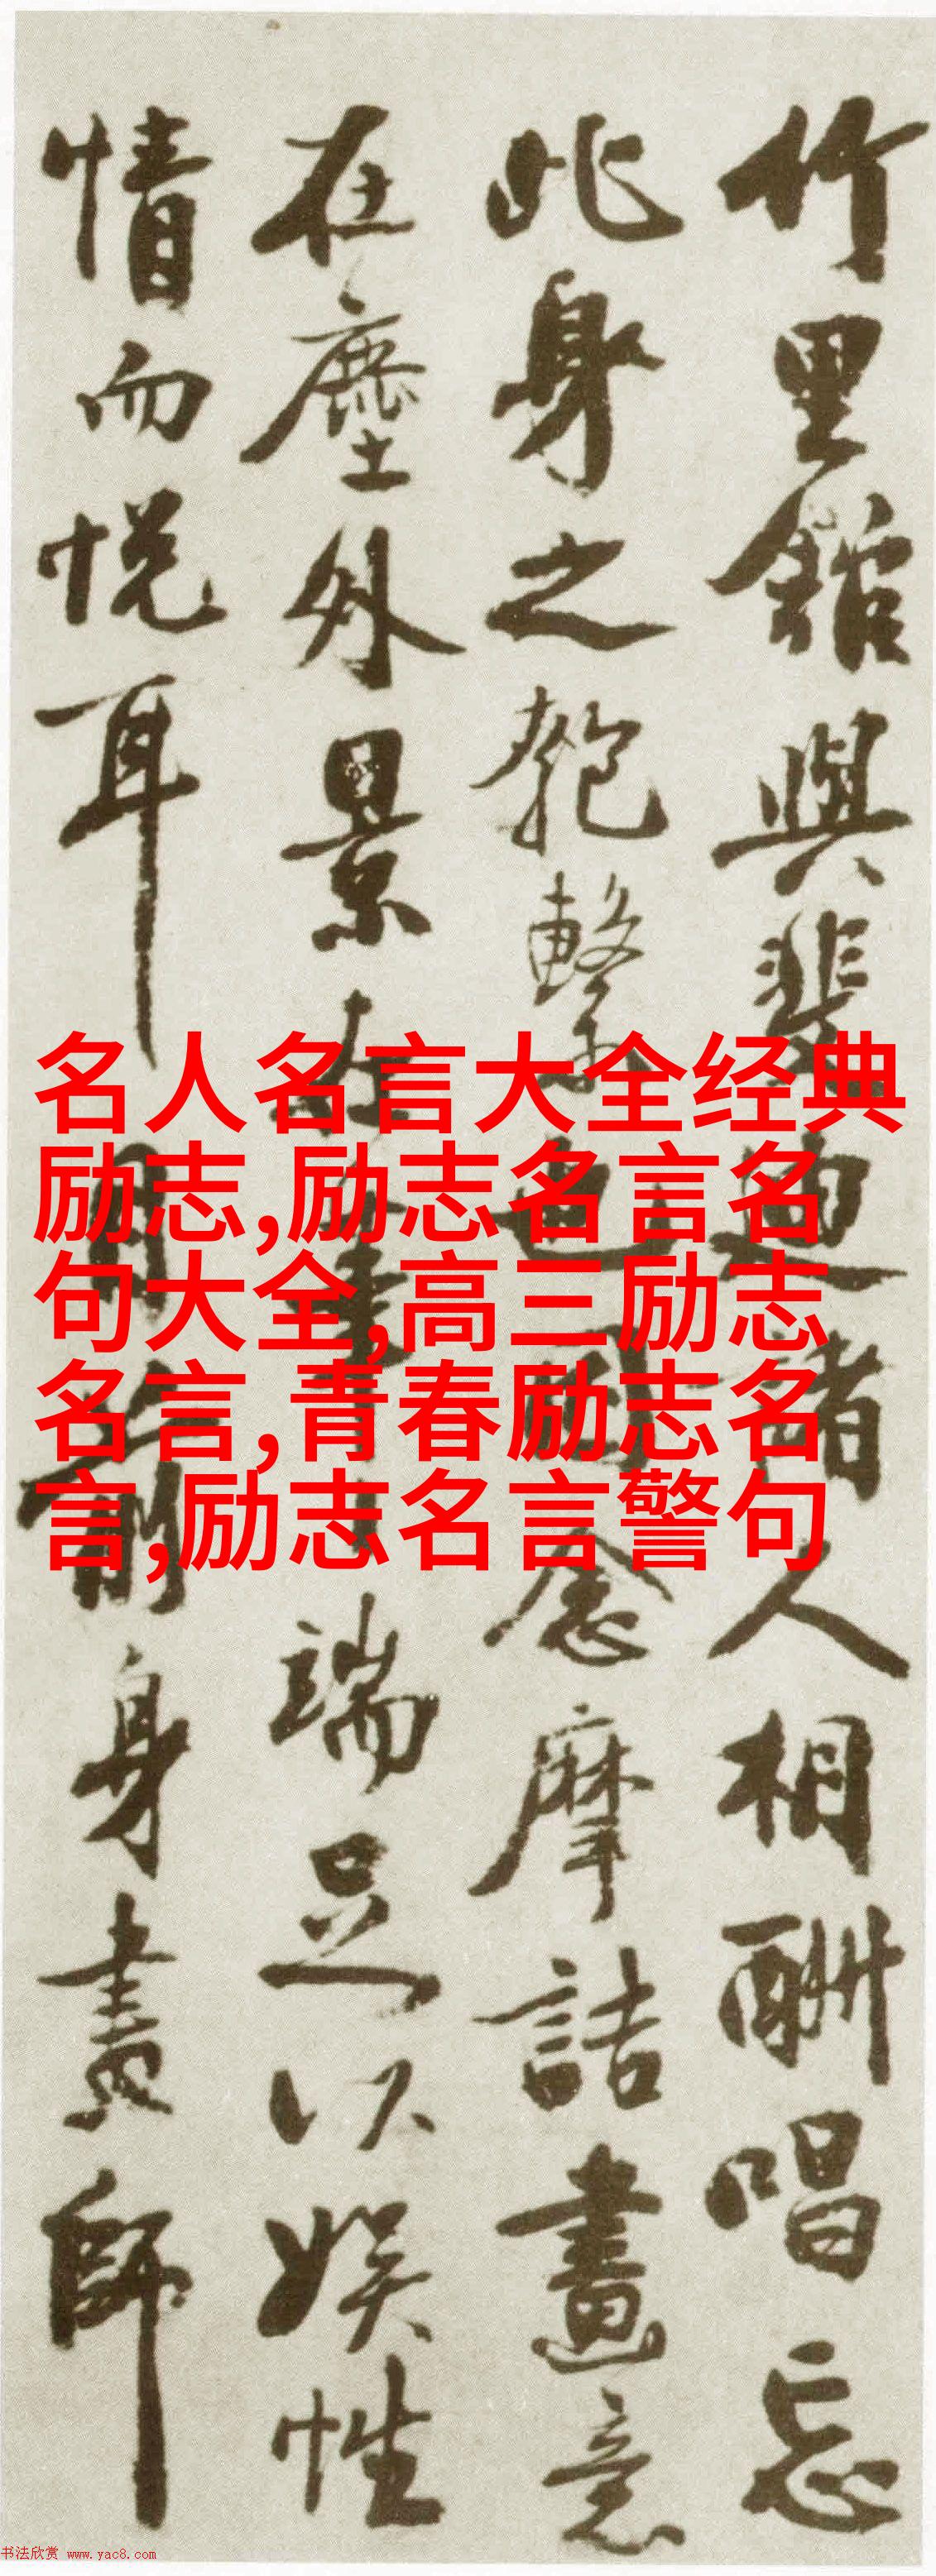 竹里館與裴迪諸人相酬唱忘
此身之匏繫也因念摩詰畫意
在塵外景在筆端足以娛性
情而悅耳目前身畫師
名人名言大全经典
励志,励志名言名
句大全,高三励志
名言,青春励志名
言,励志名言警句
书法欣赏 www.yac8.com